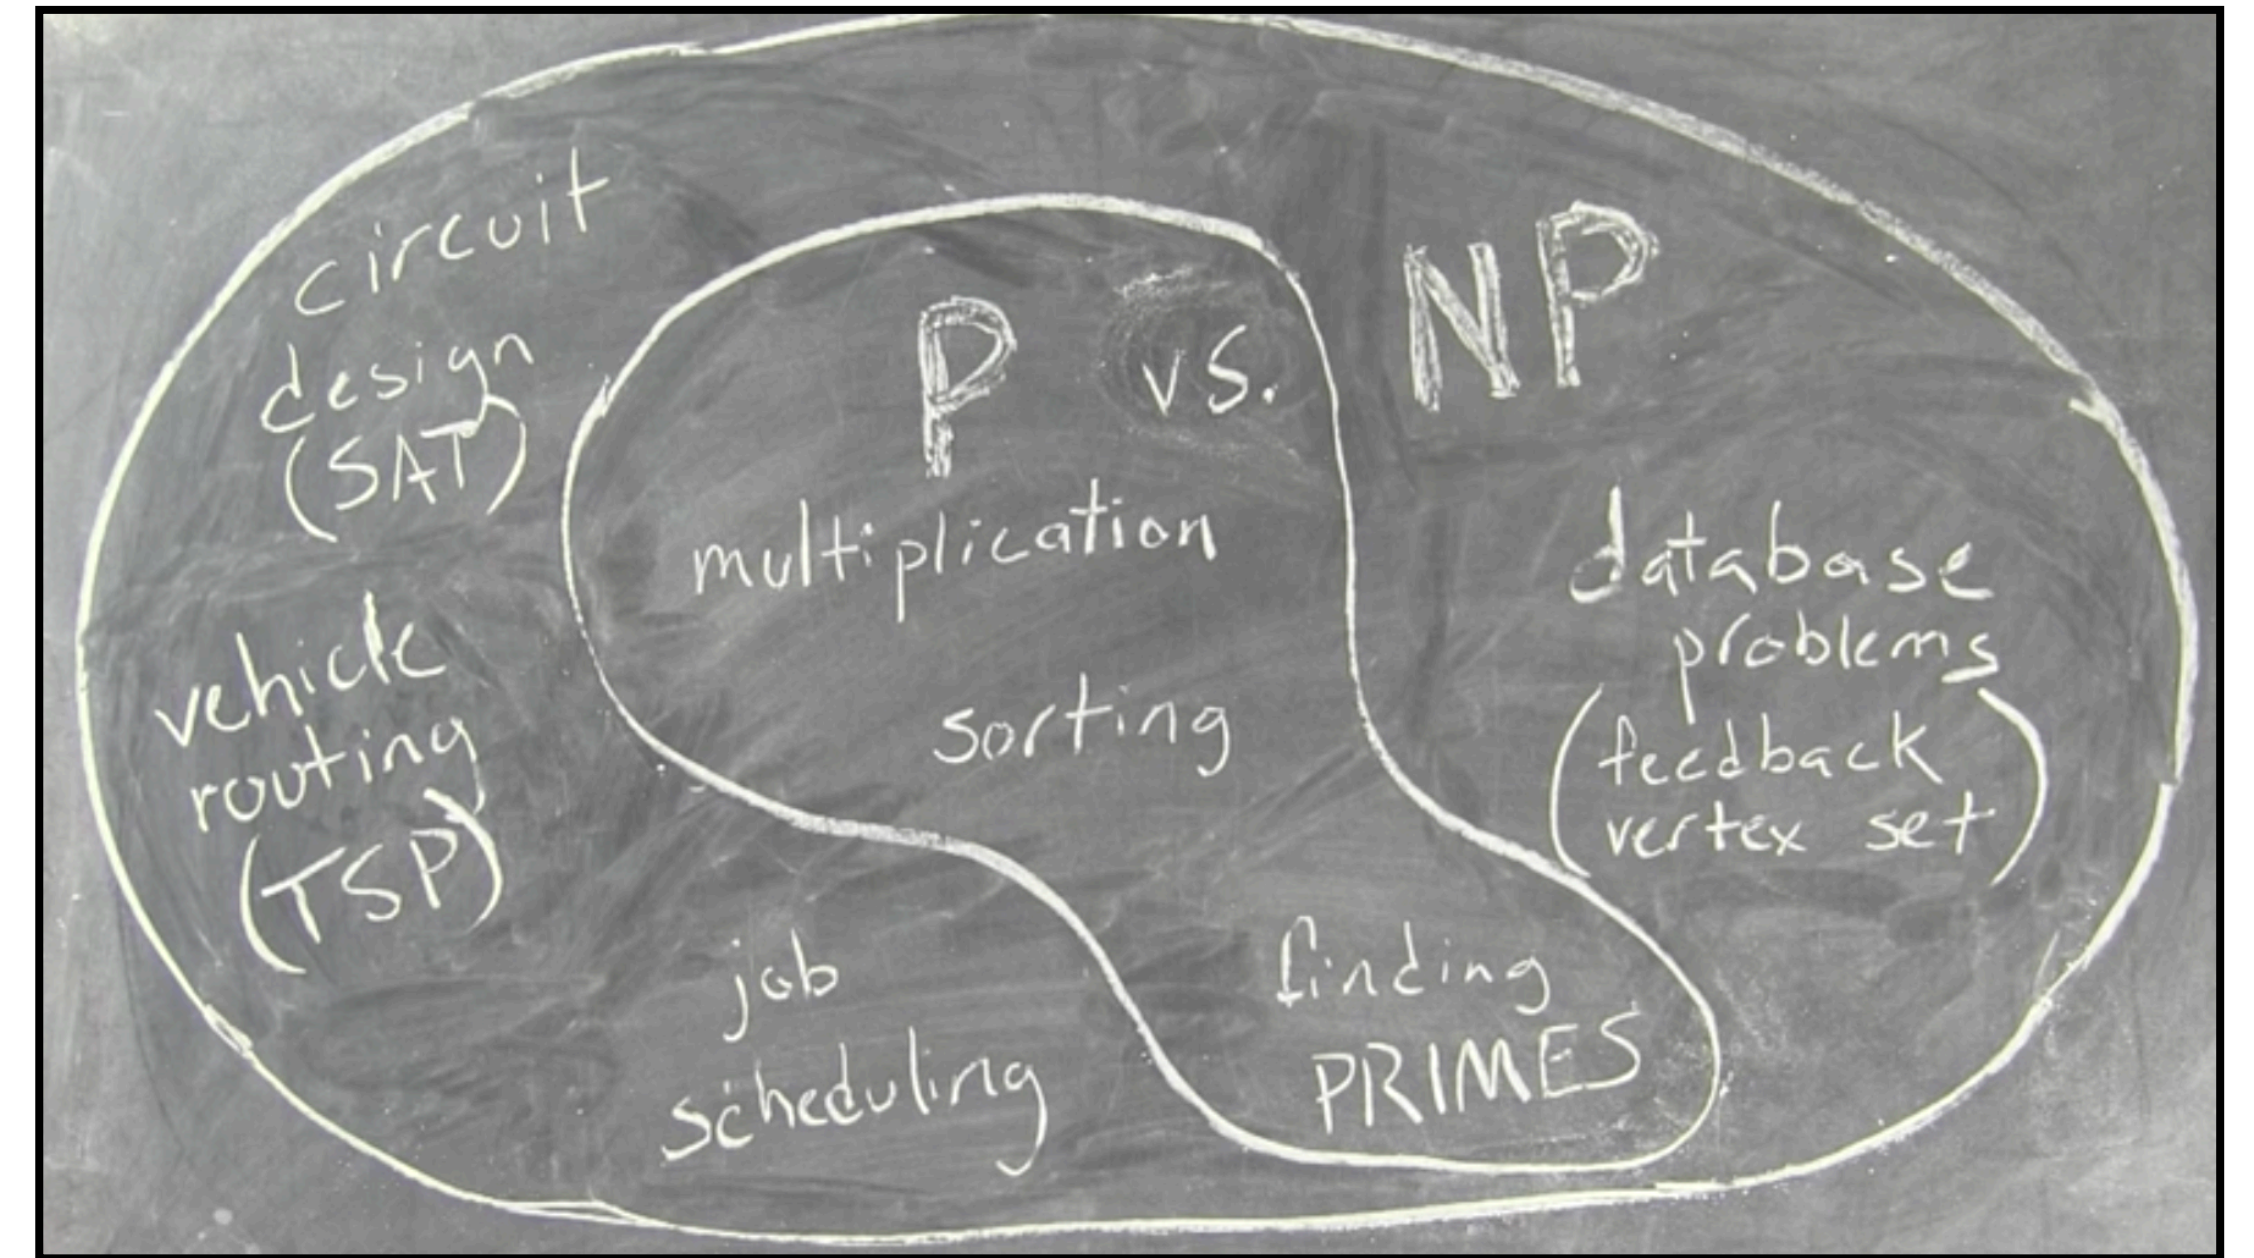 circuit
design
(SAT)
P vs. NP
multiplication
sorting
database
problems
(feedback
vertex set)
vehicle
routing
(TSP)
job
scheduling
finding
PRIMES